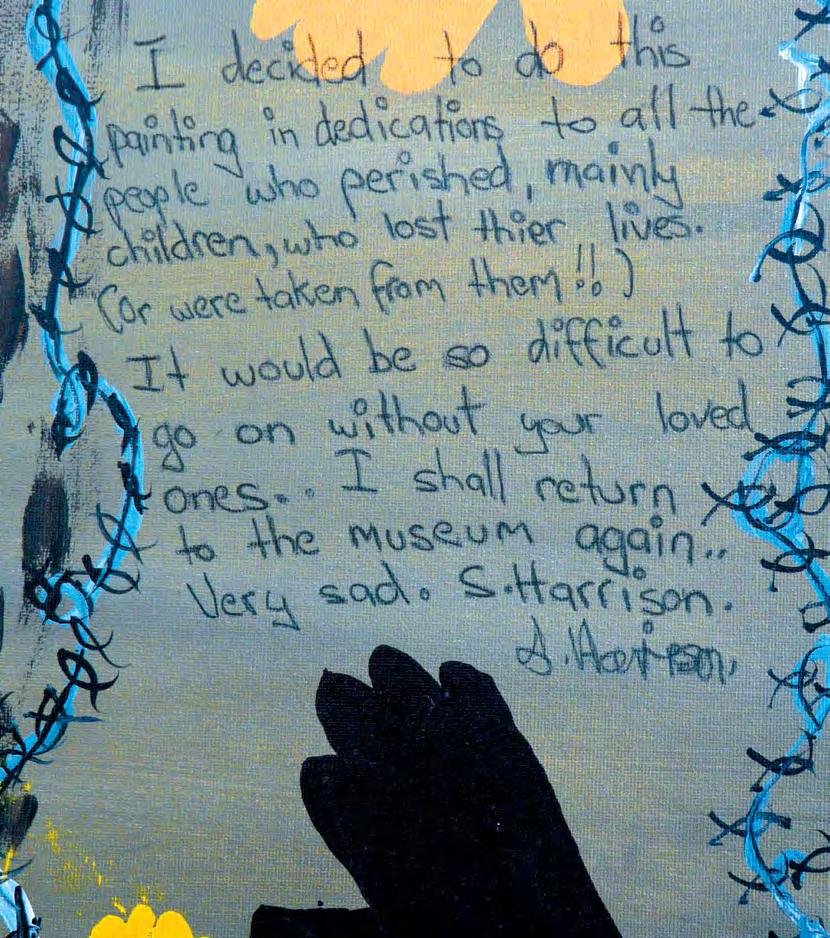 I decided to do this
painting in dedications to all the
people who perished, mainly
children, who lost thier lives.
(or were taken from them!!)
It would be so difficult to
go on without your loved
ones.. I shall return
to the museum again..
Very sad. S.Harrison.
S.Harrison.